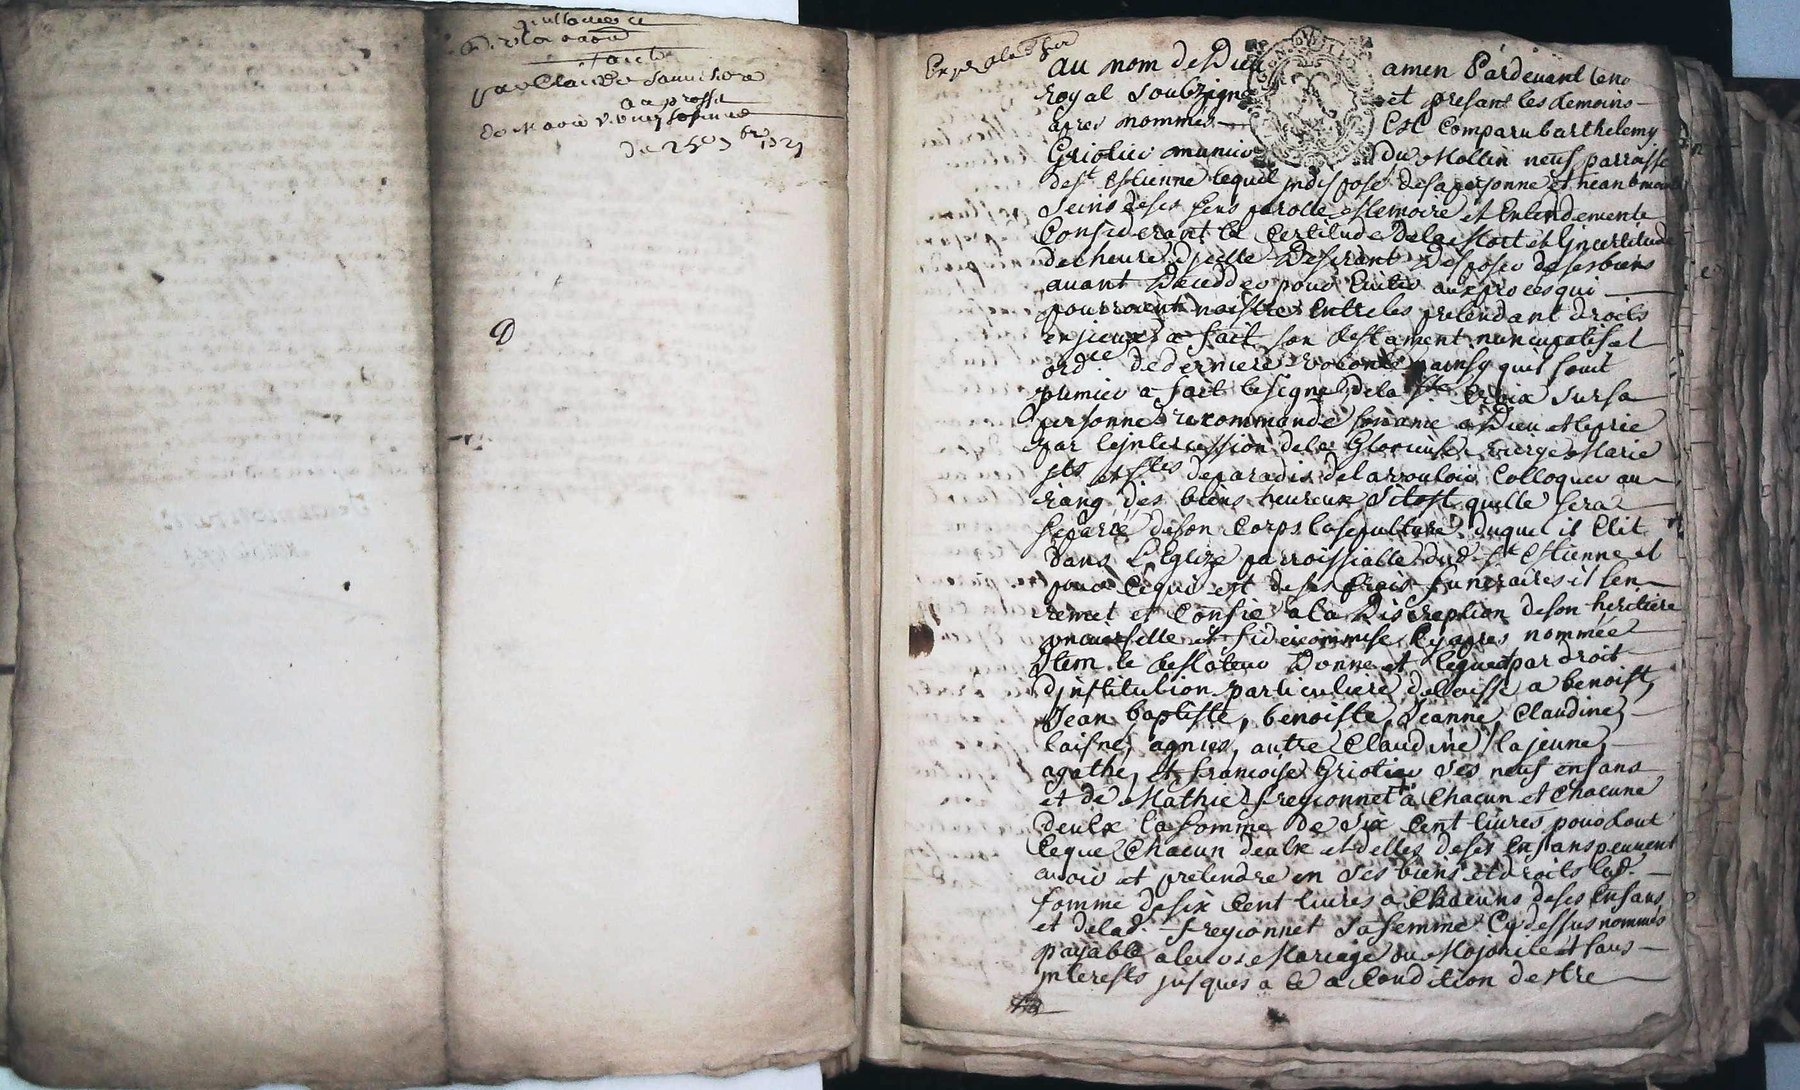 quittance
faite
par Claude
au proffit
de Marie
du 25e 9bre 1721
D
au nom de Dieu amen Pardevant le no
royal soubzigné et presant les temoins
apres nommes Est Comparu barthelemy
Griotier munier du Mollin neuf parroisse
de st Estienne lequel jndispose de sa personne et neantmoins
Seins de ses sens parolle Memoire et Entendemente
Considerant la Certitude de la Mort et Lincertitude
de lheure djcelle Desirant Disposer de ses biens
auant Deceddes pour Euiter aux proces qui
pourroient naistre Entre les pretendant droits
en jceux a fait son testament nuncupatif et
ordce de derniere volonte ainsy quil suit
premier a fait le signe de la ste Croix sur sa
personne recommande son ame a Dieu et le prie
par lejntercession de la Glorieuse vierge Marie
sts et stes de paradis de la vouloir Colloquer au
rang des biens heureux sitost quelle sera
separeé de son Corps la sepulture duquel il Elit
dans LEglize parroissialle dud st Estienne et
pour Ce qui est de ses frais funeraires il sen
remet et Confie a la Discreption de son heritiere
vniuerselle et fideicommise Cy apres nommeé
Jtem le testateur Donne et legue par droit
djnstitution particuliere delaisse a benoist,
Jean baptiste, benoiste, Jeanne, Claudine
laisne, agnies, autre Claudine la jeune,
agathe, Et francoise Griotier ses neuf enfans
et de Mathie fregionnet a Chacun et Chacune
deulx la somme de six Cent liures pour tout
Ce que Chacun deulx et delles de ses Enfans peuuent
auoir et pretendre en ses biens et droits lad.
somme de six Cent liures a Chacuns de ses Enfans
et de lad. fregionnet sa femme Cy dessus nommes
payable a leurs Mariage ou Majorite et sans
jnterests jusques a ce a Condition destre